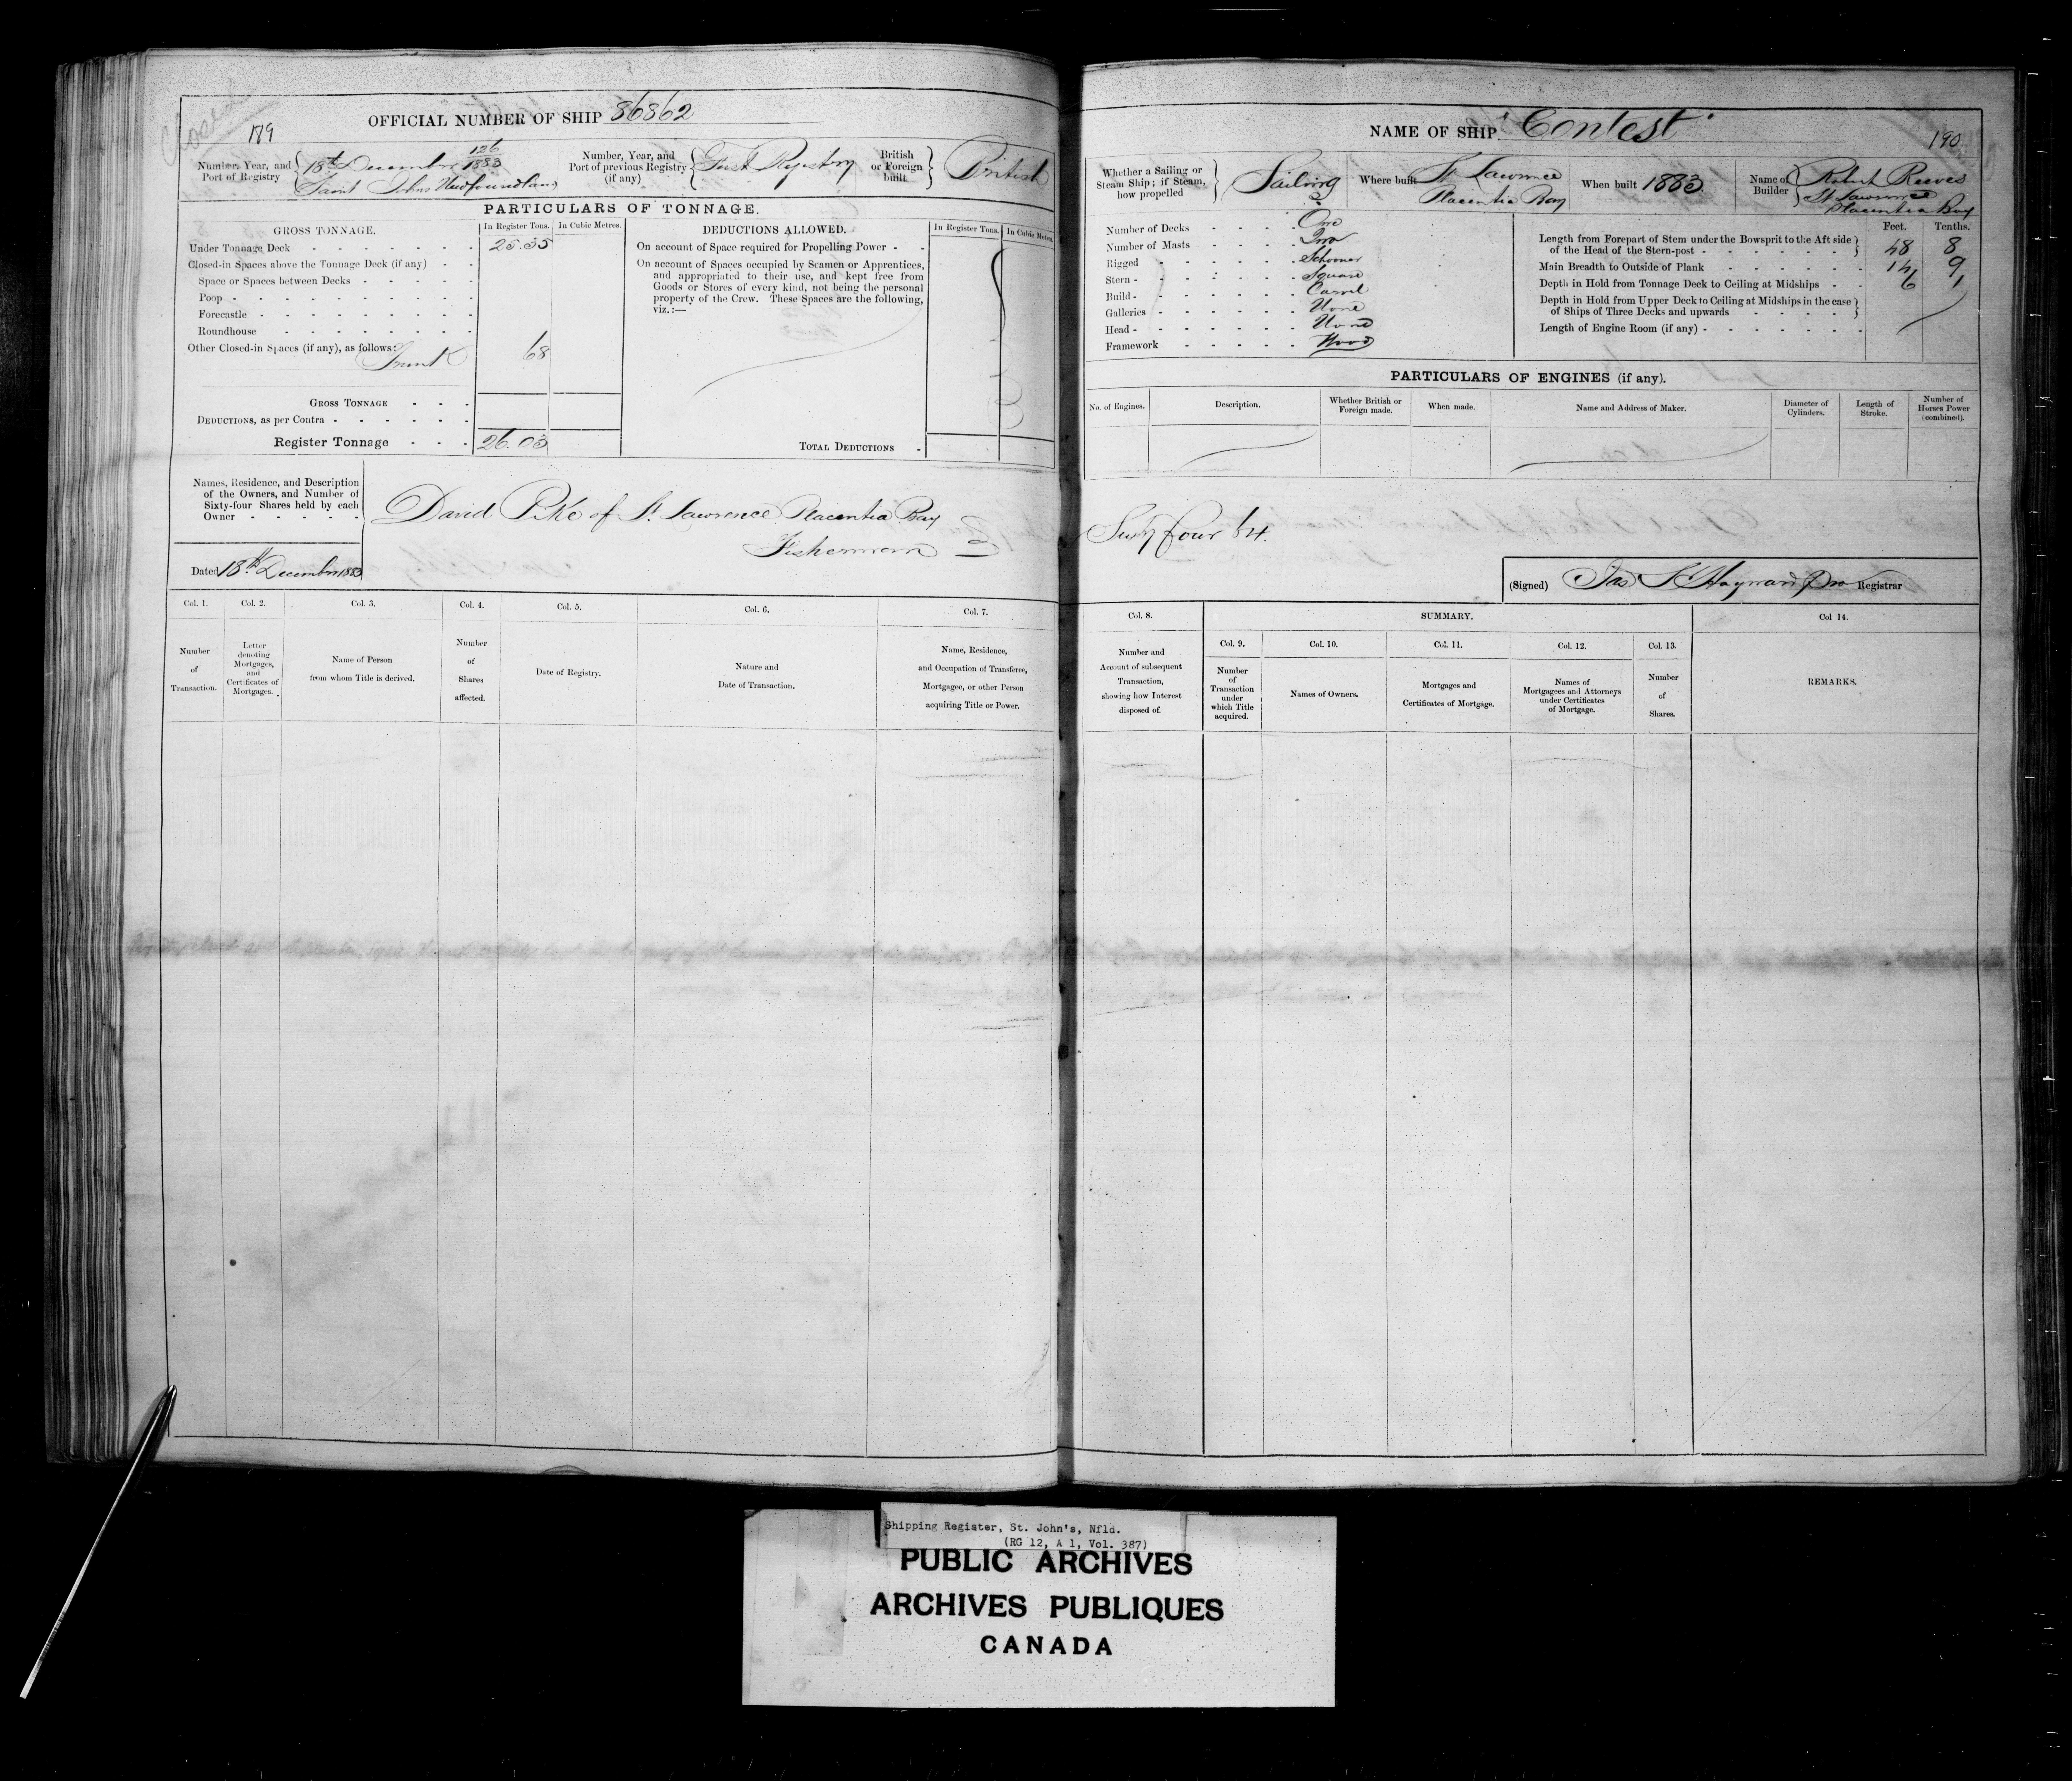 Closed
189
OFFICIAL NUMBER OF SHIP 86862
Number, Year, and Port of Registry
126
18th December 1883
Saint Johns Newfoundland
Number, Year, and Port of previous Registry (if any)
First Registry
British or Foreign built
British
PARTICULARS OF TONNAGE.
GROSS TONNAGE.
In Register Tons.
In Cubic Metres.
Under Tonnage Deck 25.35
Closed-in Spaces above the Tonnage Deck (if any)
Space or Spaces between Decks
Poop
Forecastle
Roundhouse
Other Closed-in Spaces (if any), as follows:
Trunk 68
GROSS TONNAGE
DEDUCTIONS, as per Contra
Register Tonnage 26.03
DEDUCTIONS ALLOWED.
In Register Tons.
In Cubic Metres
On account of Space required for Propelling Power
On account of Spaces occupied by Seamen or Apprentices,
and appropriated to their use, and kept free from
Goods or Stores of every kind, not being the personal
property of the Crew. These Spaces are the following,
viz.:—
TOTAL DEDUCTIONS
Names, Residence, and Description
of the Owners, and Number of
Sixty-four Shares held by each
Owner
David Pike of St. Lawrence Placentia Bay
Fisherman
Dated 18th December 1883
Col. 1.
Number
of
Transaction.
Col. 2.
Letter
denoting
Mortgages,
and
Certificates of
Mortgages.
Col. 3.
Name of Person
from whom Title is derived.
Col. 4.
Number
of
Shares
affected.
Col. 5.
Date of Registry.
Col. 6.
Nature and
Date of Transaction.
Col. 7.
Name, Residence,
and Occupation of Transferee,
Mortgagee, or other Person
acquiring Title or Power.
NAME OF SHIP. "Contest"
190
Whether a Sailing or
Steam Ship; if Steam,
how propelled
Sailing
Where built
St Lawrence
Placentia Bay
When built 1883
Name of Builder
Robert Reeves
St Lawrence
Placentia Bay
Number of Decks One
Number of Masts Two
Rigged Schooner
Stern Square
Build Carvel
Galleries None
Head None
Framework Wood
Feet. Tenths.
Length from Forepart of Stem under the Bowsprit to the Aft side
of the Head of the Stern-post 48 8
Main Breadth to Outside of Plank 14 9
Depth in Hold from Tonnage Deck to Ceiling at Midships 6 1
Depth in Hold from Upper Deck to Ceiling at Midships in the case
of Ships of Three Decks and upwards
Length of Engine Room (if any)
PARTICULARS OF ENGINES (if any).
No. of Engines.
Description.
Whether British or
Foreign made.
When made.
Name and Address of Maker.
Diameter of
Cylinders.
Length of
Stroke.
Number of
Horses Power
(combined).
Sixty four 64.
(Signed) Jas S Hayward Registrar
Col. 8.
Number and
Account of subsequent
Transaction,
showing how Interest
disposed of.
SUMMARY.
Col. 9.
Number
of
Transaction
under
which Title
acquired.
Col. 10.
Names of Owners.
Col. 11.
Mortgages and
Certificates of Mortgage.
Col. 12.
Names of
Mortgagees and Attorneys
under Certificates
of Mortgage.
Col. 13.
Number
of
Shares.
Col 14.
REMARKS.
Shipping Register, St. John's, Nfld.
(RG 12, A 1, Vol. 387)
PUBLIC ARCHIVES
ARCHIVES PUBLIQUES
CANADA